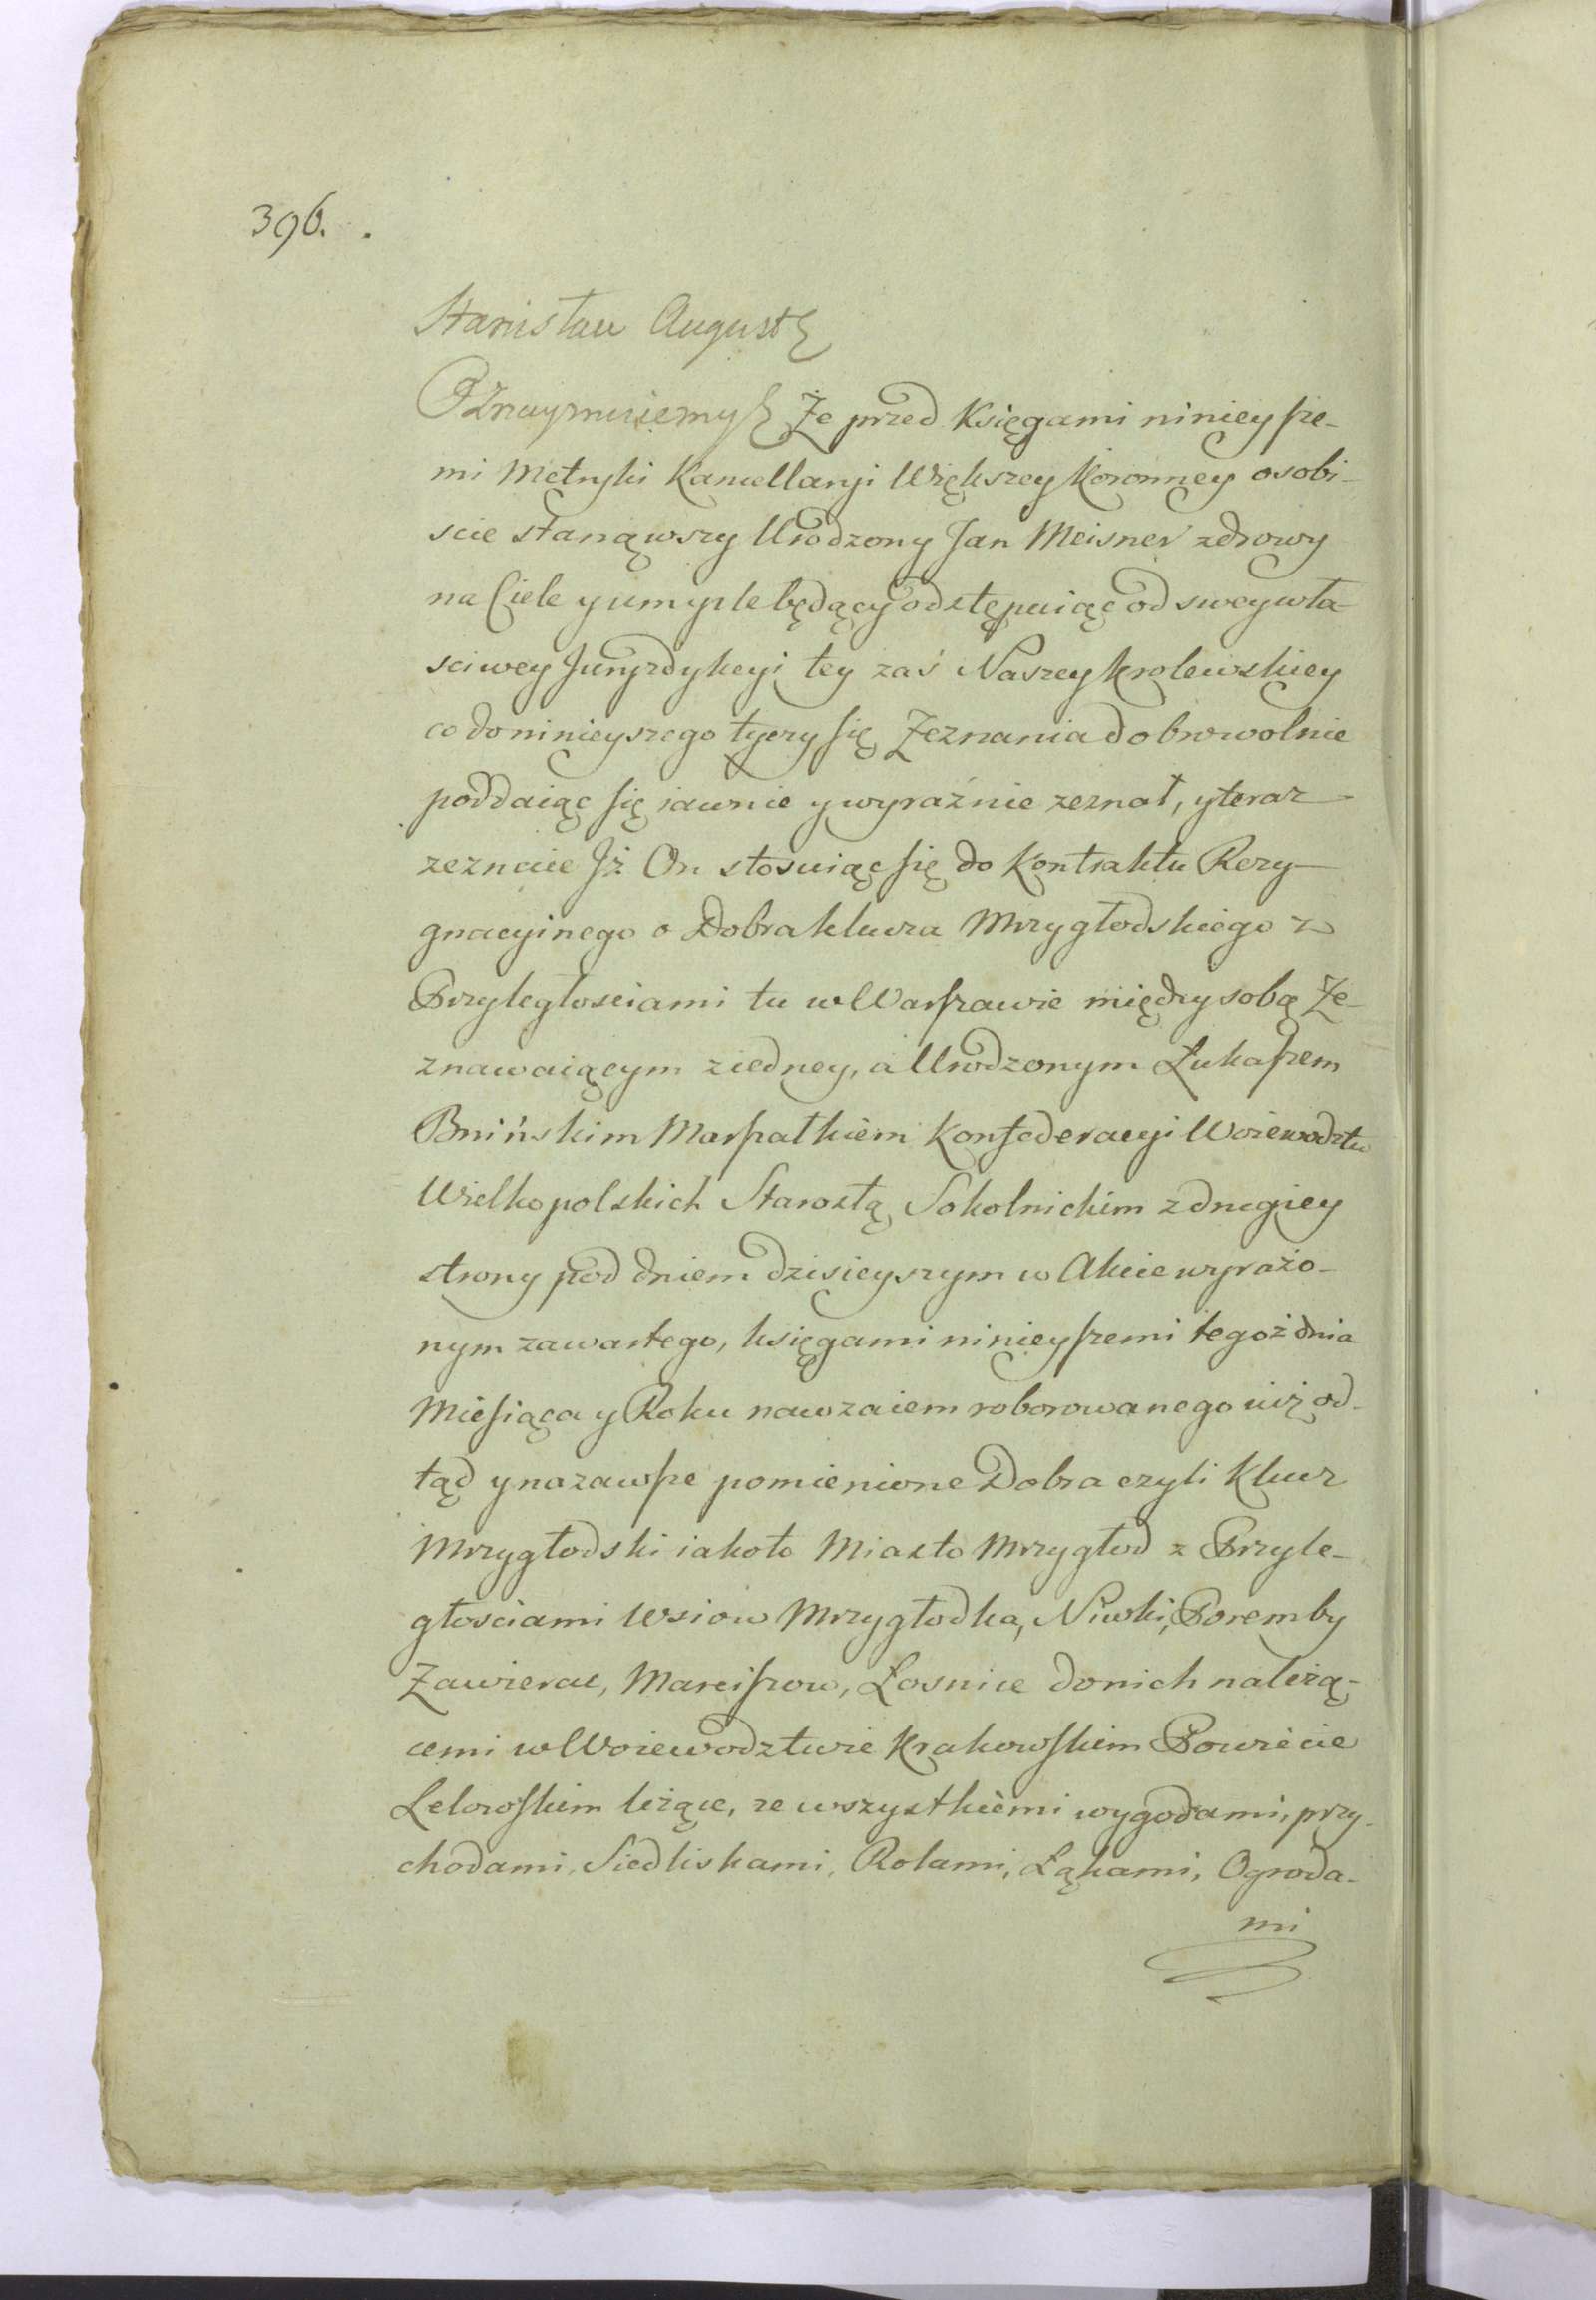 396.
Stanisław August
Oznaymuiemy Że przed Księgami ninieysze-
mi Metryki Kancellaryi Większey Koronney osobi-
scie stanąwszy Urodzony Jan Meisner zdrowy
na Ciele y umysle będący odstępuiąc od swey wła-
sciwey Juryzdykcyi tey zaś Naszey Krolewskiey
co do ninieyszego tyczy się Zeznania dobrowolnie
poddaiąc się iawnie y wyraźnie zeznał, y teraz
zeznaie Jż On stosuiąc się do Kontraktu Rezy-
gnacyinego o Dobra klucza Mrzygłodskiego z
Przyległosciami tu w Warszawie między sobą Ze-
znawaiącym z iedney, a Urodzonym Łukaszem
Bnińskim Marszałkiem Konfederacyi Woiewodztw
Wielkopolskich Starostą Sokolnickim z drugiey
strony pod dniem dzisieyszym w Akcie wyrażo-
nym zawartego, księgami ninieyszemi tegoż dnia
Miesiąca y Roku nawzaiem roborowanego iuż od-
tąd y nazawsze pomienione Dobra czyli Klucz
Mrzygłodski iakoto Miasto Mrzygłod z Przyle-
głosciami Wsiow Mrzygłodka, Niwki, Poremby
Zawierac, Marciszow, Łosnice do nich należą-
cemi w Woiewodztwie Krakowskim Powiecie
Lelowskim leżące, ze wszystkiemi wygodami, przy-
chodami, Siedliskami, Rolami, Łąkami, Ogroda-
mi